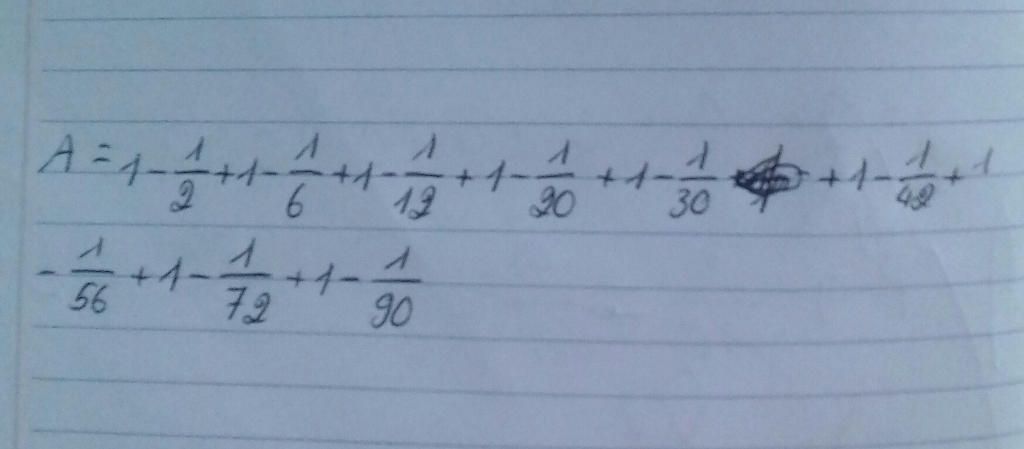 A = 1 - 1/2 + 1 - 1/6 + 1 - 1/12 + 1 - 1/20 + 1 - 1/30 + 1 - 1/42 + 1
- 1/56 + 1 - 1/72 + 1 - 1/90